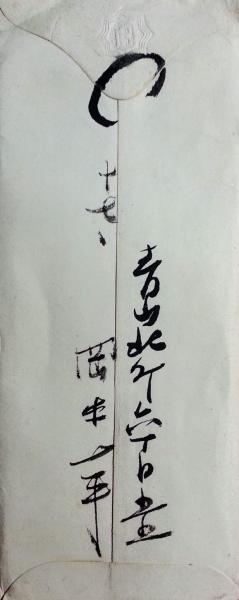 青山北町六丁目
十七、
岡本一平